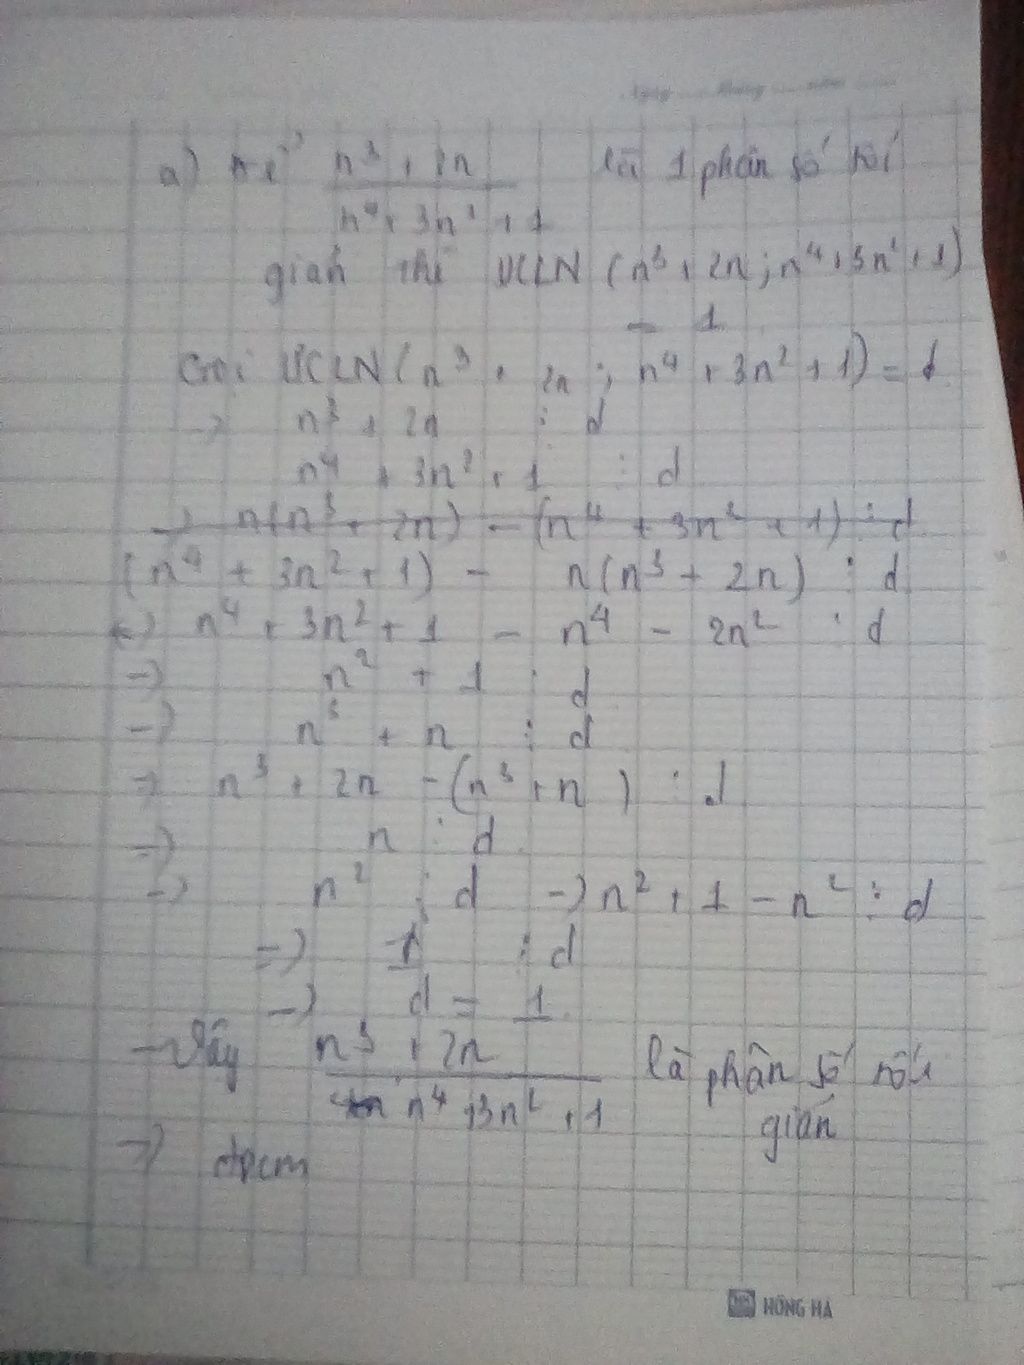 Ngày ..... tháng ..... năm .....
a) n³ + 2n là 1 phân số tối
n⁴ + 3n² + 1
giản thì ƯCLN (n³ + 2n ; n⁴ + 3n² + 1)
= 1
Gọi ƯCLN (n³ + 2n ; n⁴ + 3n² + 1) = d
-> n³ + 2n ⋮ d
n⁴ + 3n² + 1 ⋮ d
-> n(n³ + 2n) - (n⁴ + 3n² + 1) ⋮ d
(n⁴ + 3n² + 1) - n(n³ + 2n) ⋮ d
<-> n⁴ + 3n² + 1 - n⁴ - 2n² ⋮ d
-> n² + 1 ⋮ d
-> n³ + n ⋮ d
-> n³ + 2n - (n³ + n) ⋮ d
=> n ⋮ d
-> n² ⋮ d -> n² + 1 - n² ⋮ d
=> 1 ⋮ d
-> d = 1
- Vậy n³ + 2n là phân số tối
n⁴ + 3n² + 1 giản
=> đpcm
HỒNG HÀ